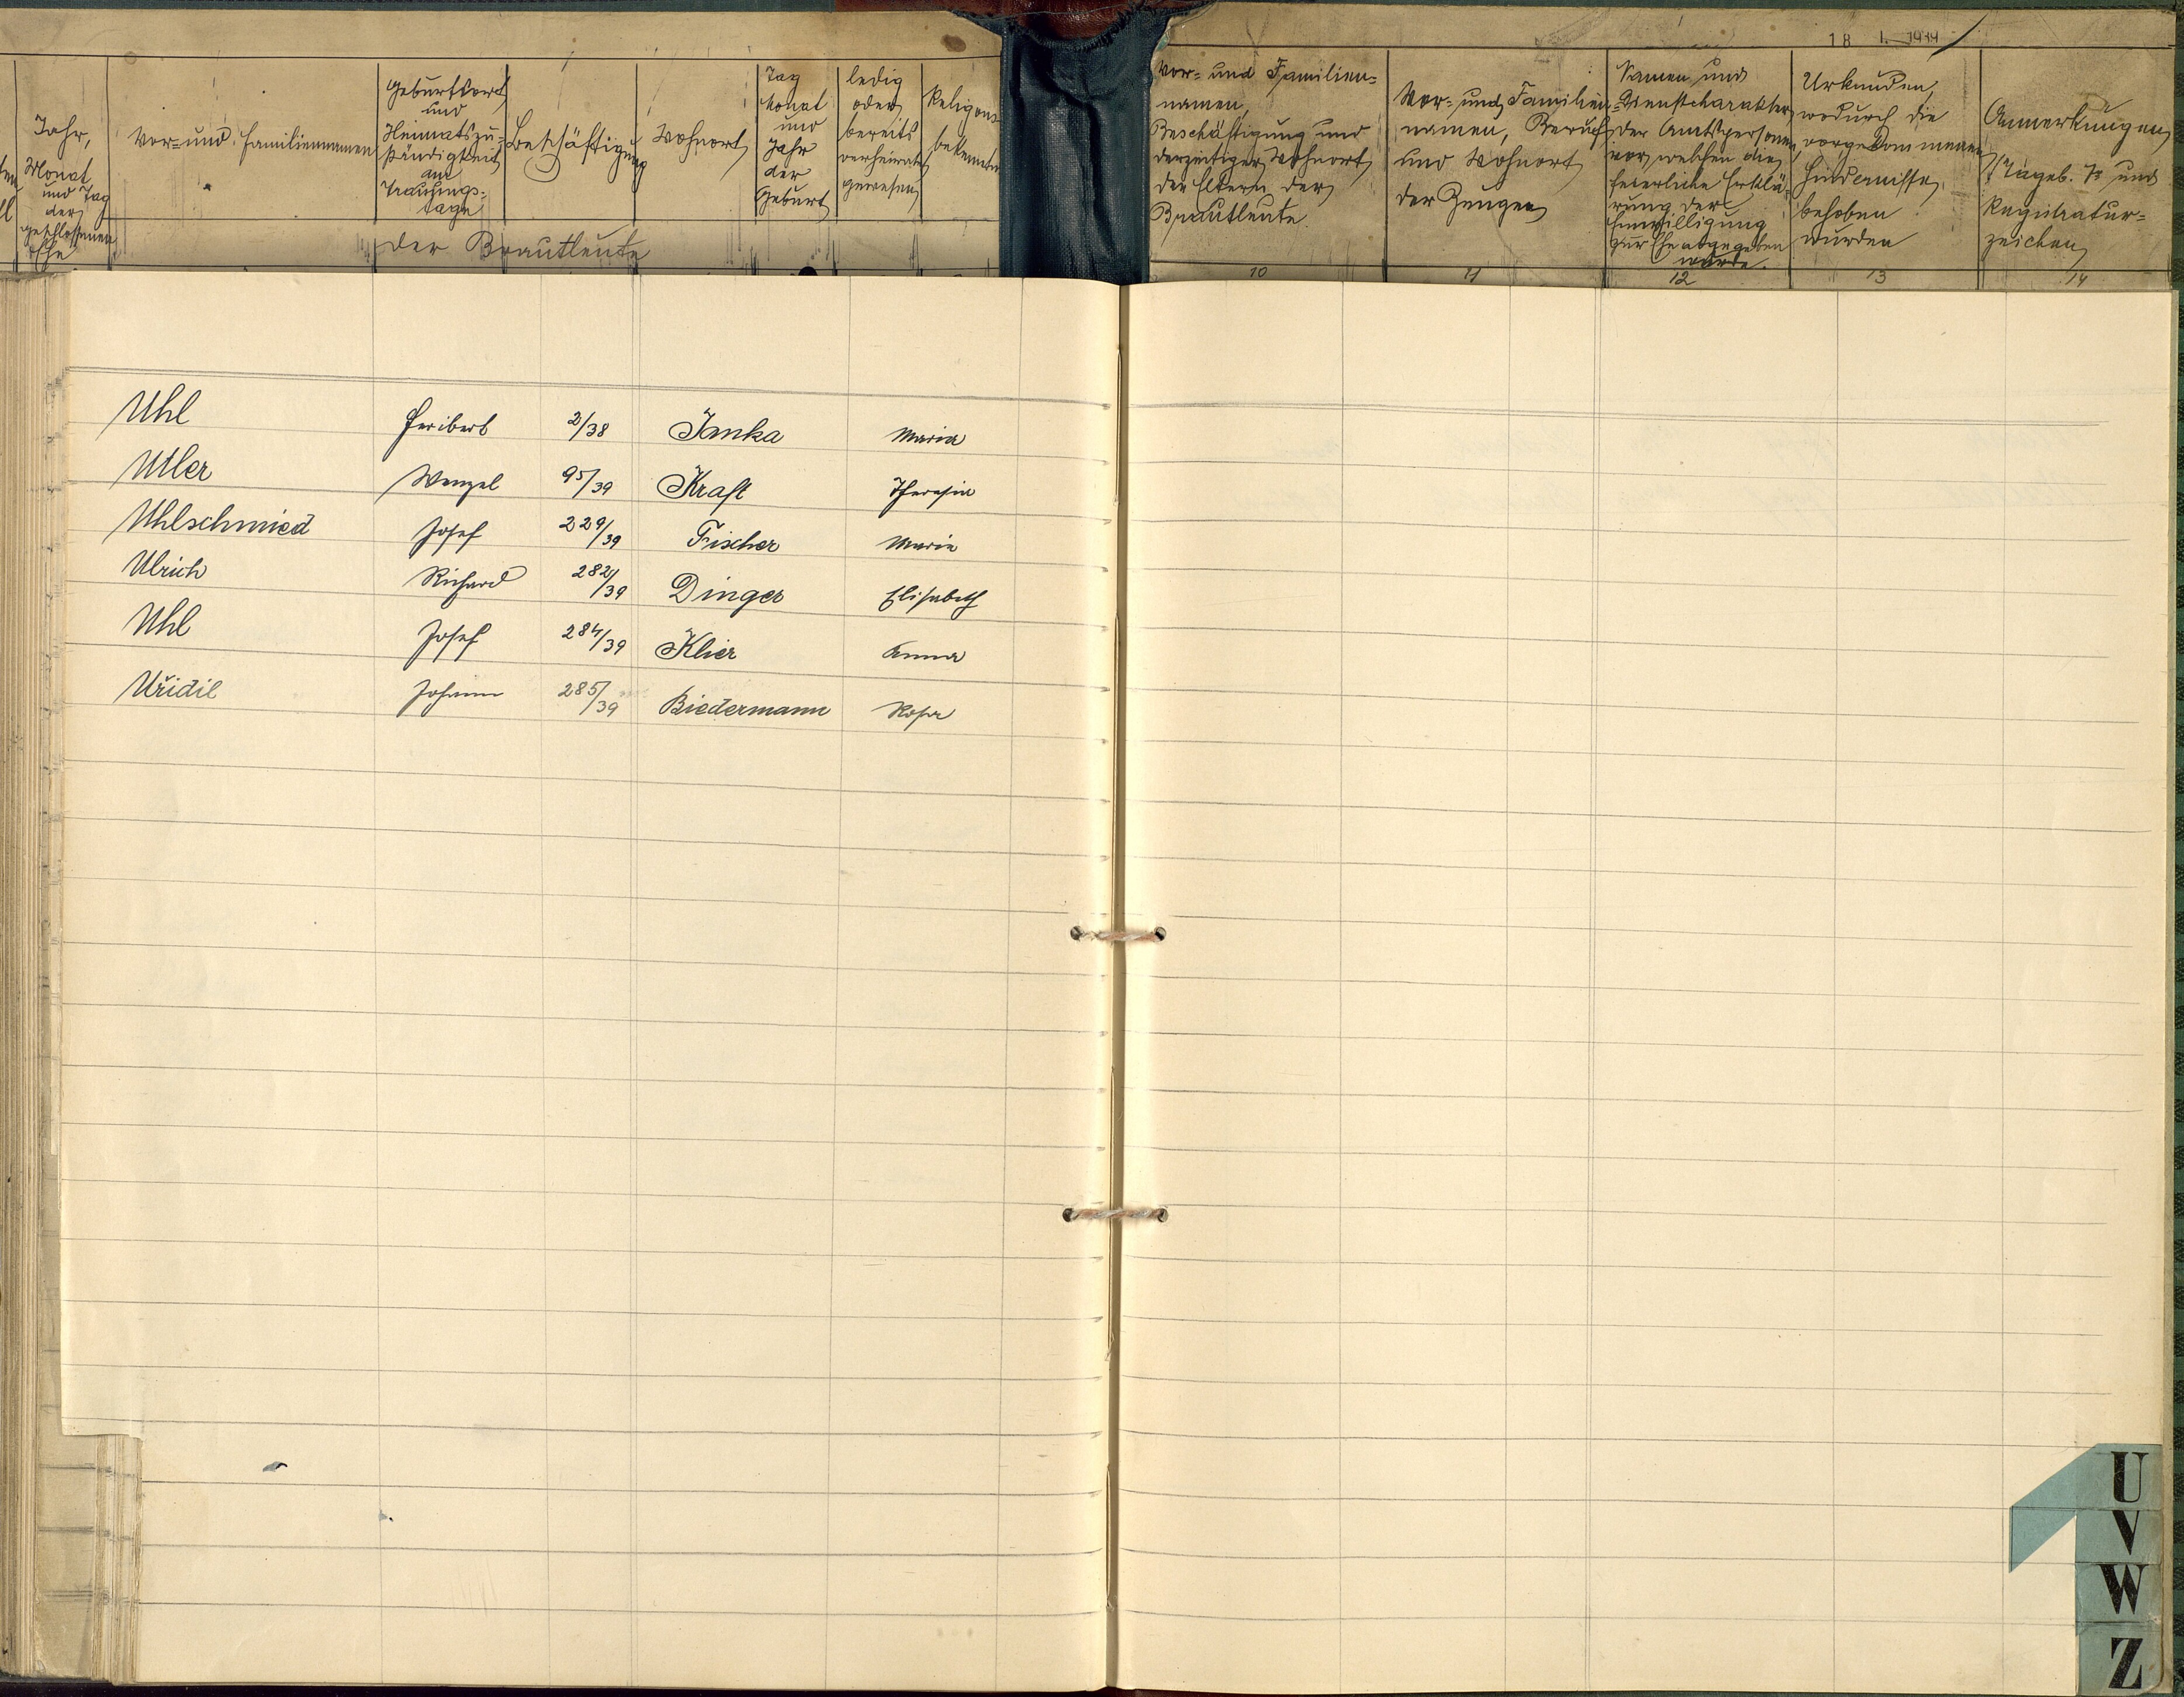 18 I. 1944
Jahr,
Monat
und Tag
der
geschlossenen
Ehe
Vor- und Familiennamen
Geburtsort
und
Heimatszu-
ständigkeit
am
Trauungs-
tage
Beschäftigung
Wohnort
Tag
Monat
und
Jahr
der
Geburt
ledig
oder
bereits
verheiratet
gewesen
Religions-
bekenntn
der Brautleute
Vor- und Familien-
namen,
Beschäftigung und
derzeitiger Wohnort
der Eltern der
Brautleute.
Vor- und Familien-
namen, Beruf
und Wohnort
der Zeugen
Namen und
Dienstcharakter
der Amtspersonen
vor welchen die
feierliche Erklä-
rung der
Einwilligung
zur Ehe abgegeben
wurde.
Urkunden,
wodurch die
vorgekommenen
Hindernisse
behoben
wurden
Anmerkungen
Tageb. Nr und
Registratur-
zeichen
10 11 12 13 14
Uhl Heribert 2/38 Janka Maria
Utler Wenzel 95/39 Kraft Theresia
Uhlschmied Josef 229/39 Fischer Maria
Ulrich Richard 282/39 Dinger Elisabeth
Uhl Josef 284/39 Klier Anna
Uřidil Johann 285/39 Biedermann Rosa
U
V
W
Z